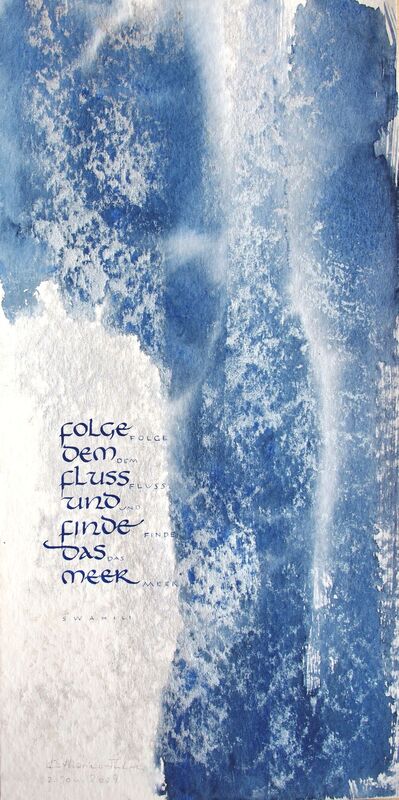 Folge FOLGE
dem DEM
Fluss FLUSS
und UND
finde FINDE
das DAS
Meer MEER
SWAHILI
2009